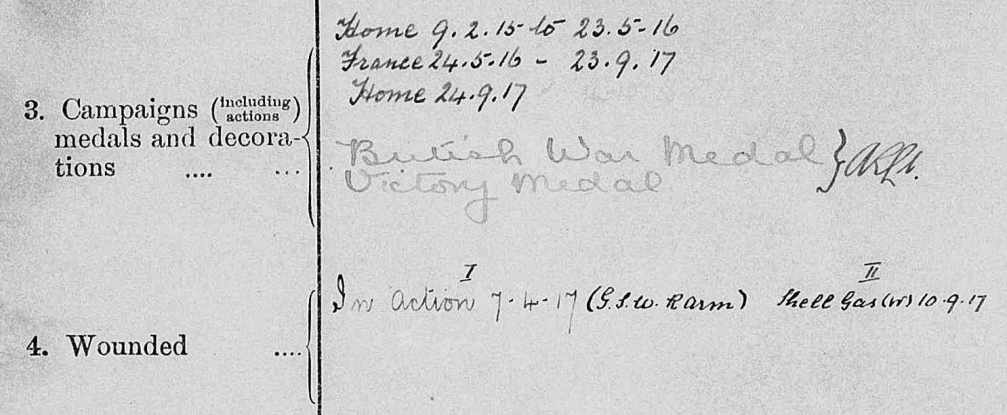 Home 9.2.15 to 23.5.16
France 24.5.16 - 23.9.17
Home 24.9.17
3. Campaigns (including actions) medals and decora-
tions .... ...
British War Medal
Victory Medal
I II
In action 7.4.17 (G.S.W. R arm) Shell Gas (W) 10.9.17
4. Wounded ....